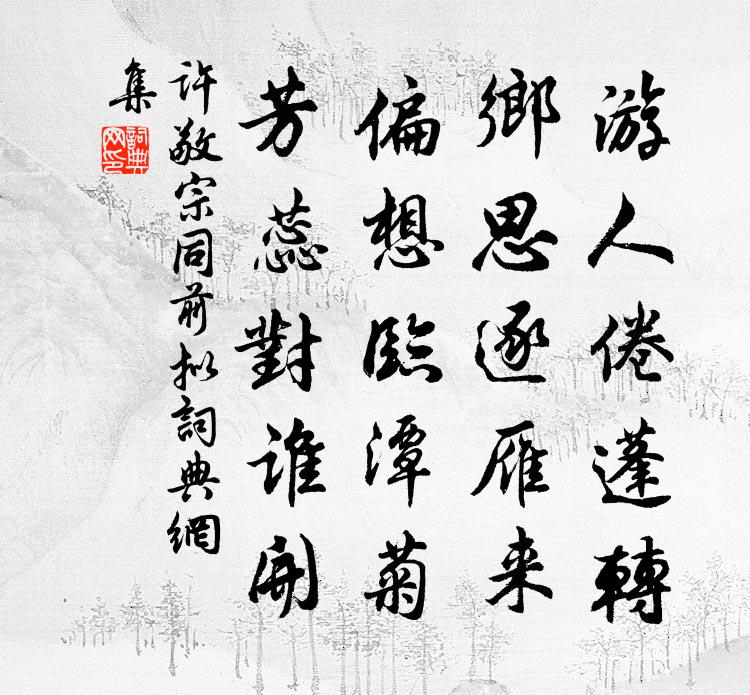 游人倦蓬轉
鄉思逐雁来
偏想臨潭菊
芳蕊對誰開
許敬宗同前拟詞典網
集
詞典網印